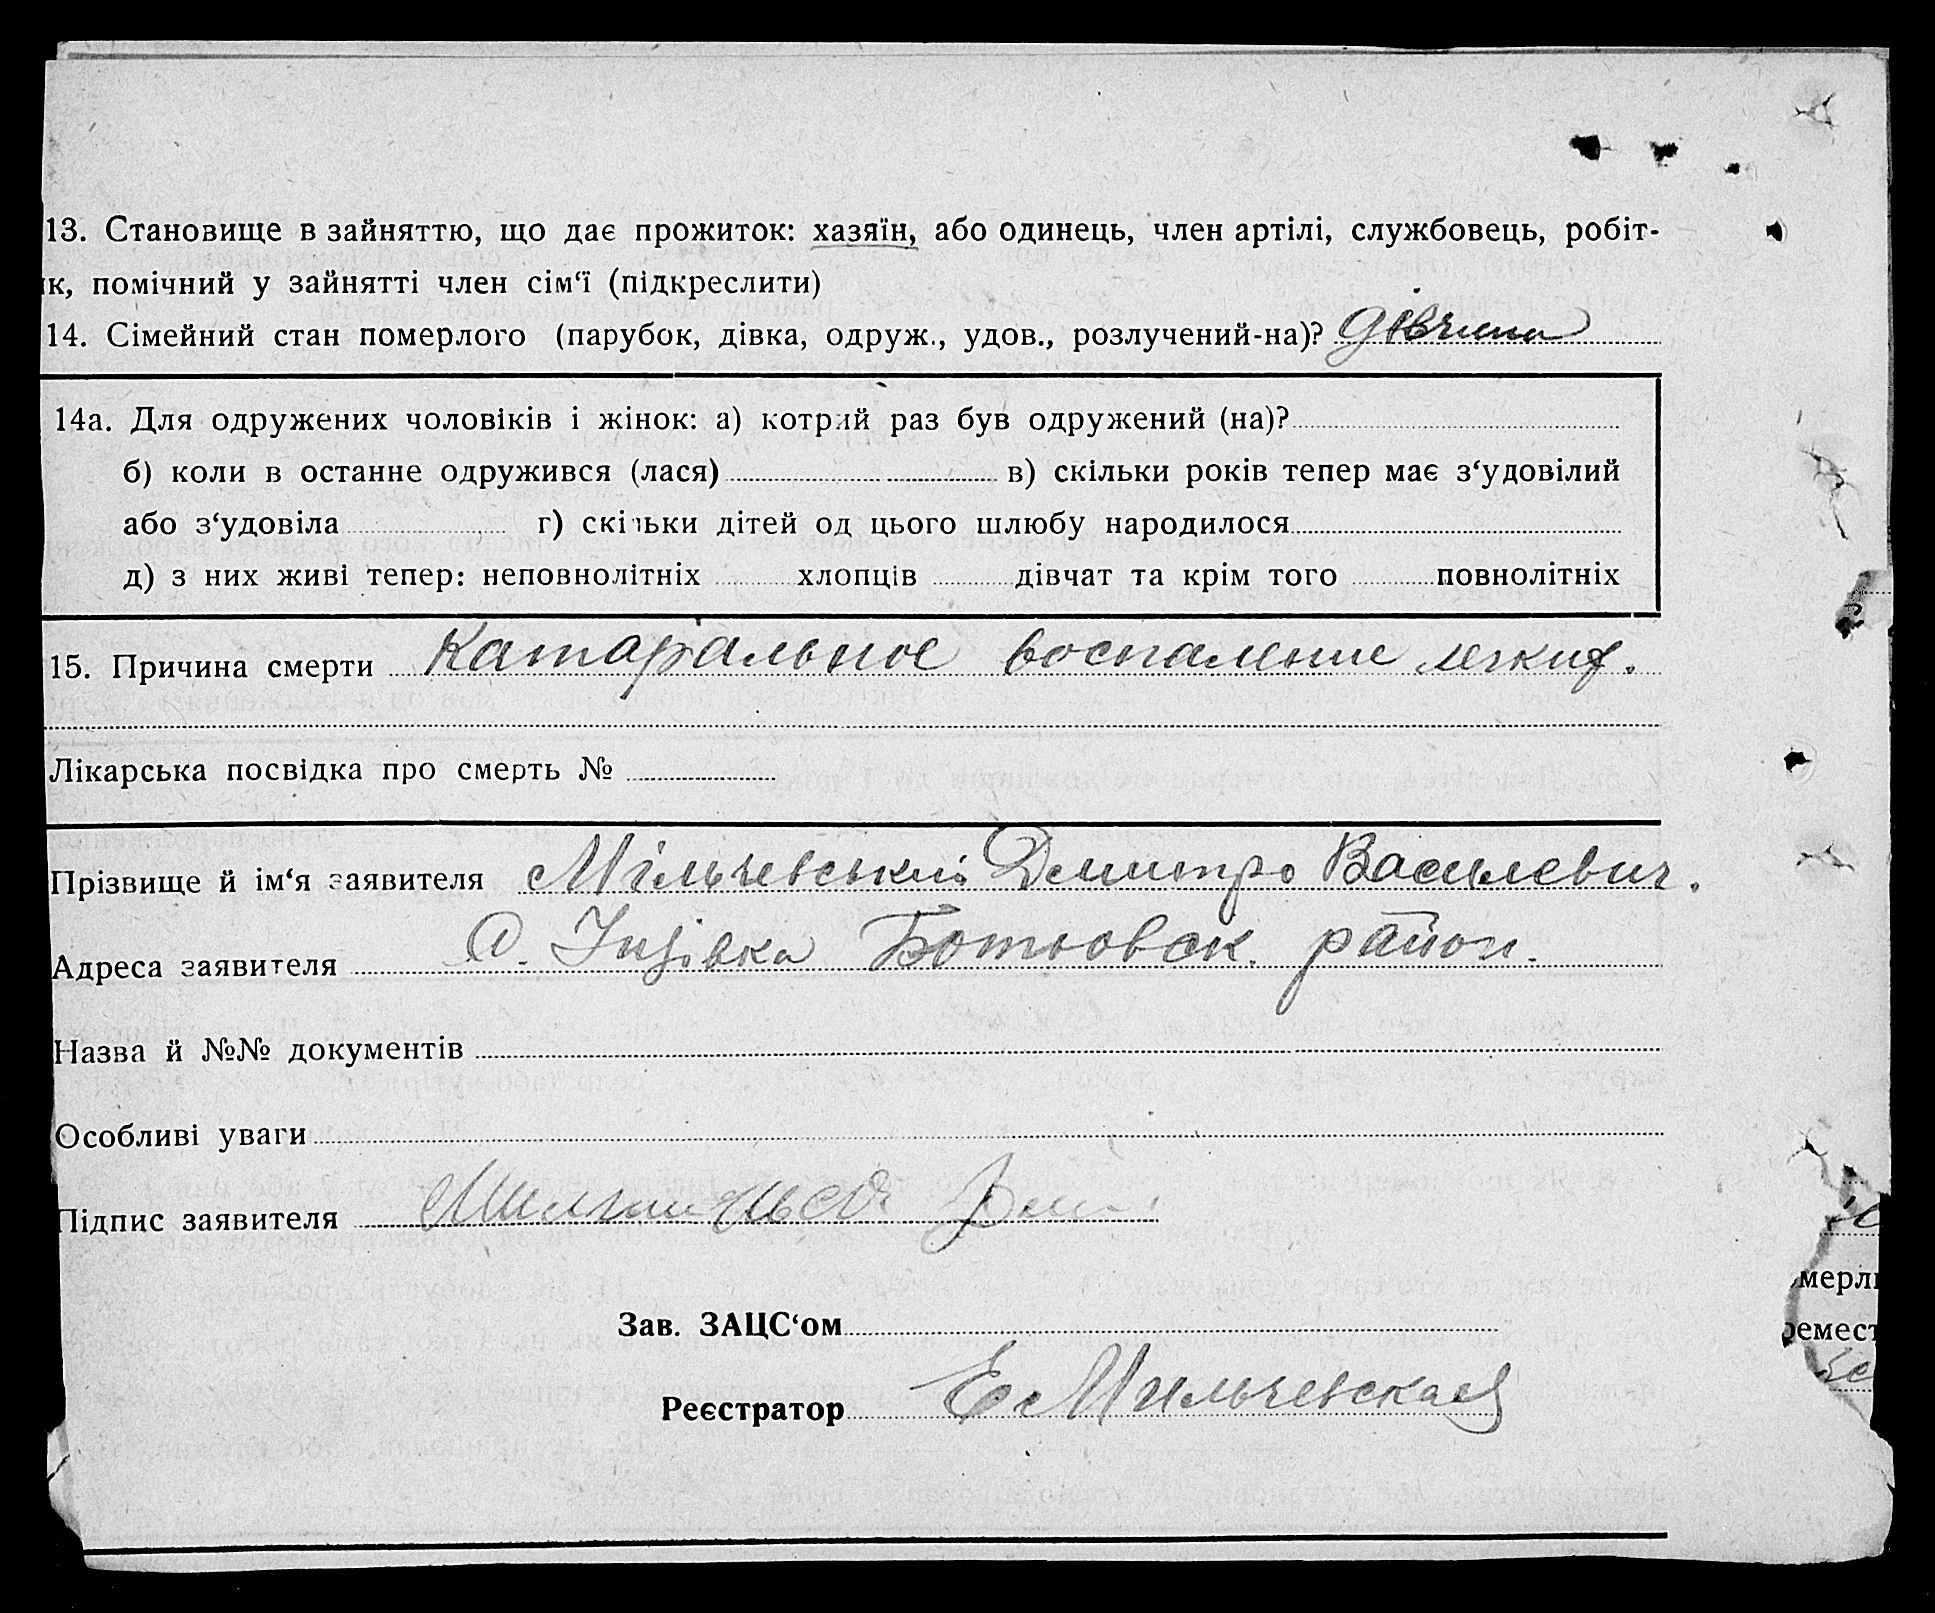 13. Становище в зайняттю, що дає прожиток: хазяїн, або одинець, член артілі, службовець, робіт-
к, помічний у зайнятті член сім‘ї (підкреслити)
14. Сімейний стан померлого (парубок, дівка, одруж., удов., розлучений-на)? дівчина
14а. Для одружених чоловіків і жінок: а) котрий раз був одружений (на)?
б) коли в останнє одружився (лася) в) скільки років тепер має з‘удовілий
або з‘удовіла г) скільки дітей од цього шлюбу народилося
д) з них живі тепер: неповнолітніх хлопців дівчат та крім того повнолітніх
15. Причина смерти Катаральное воспаление легких.
Лікарська посвідка про смерть №
Прізвище й ім‘я заявителя Мільчевський Дмитро Василевич.
Адреса заявителя с. Інзівка район.
Назва й №№ документів
Особливі уваги
Підпис заявителя
Зав. ЗАЦС‘ом
Реєстратор Е Мильчевская
мерл
ремест